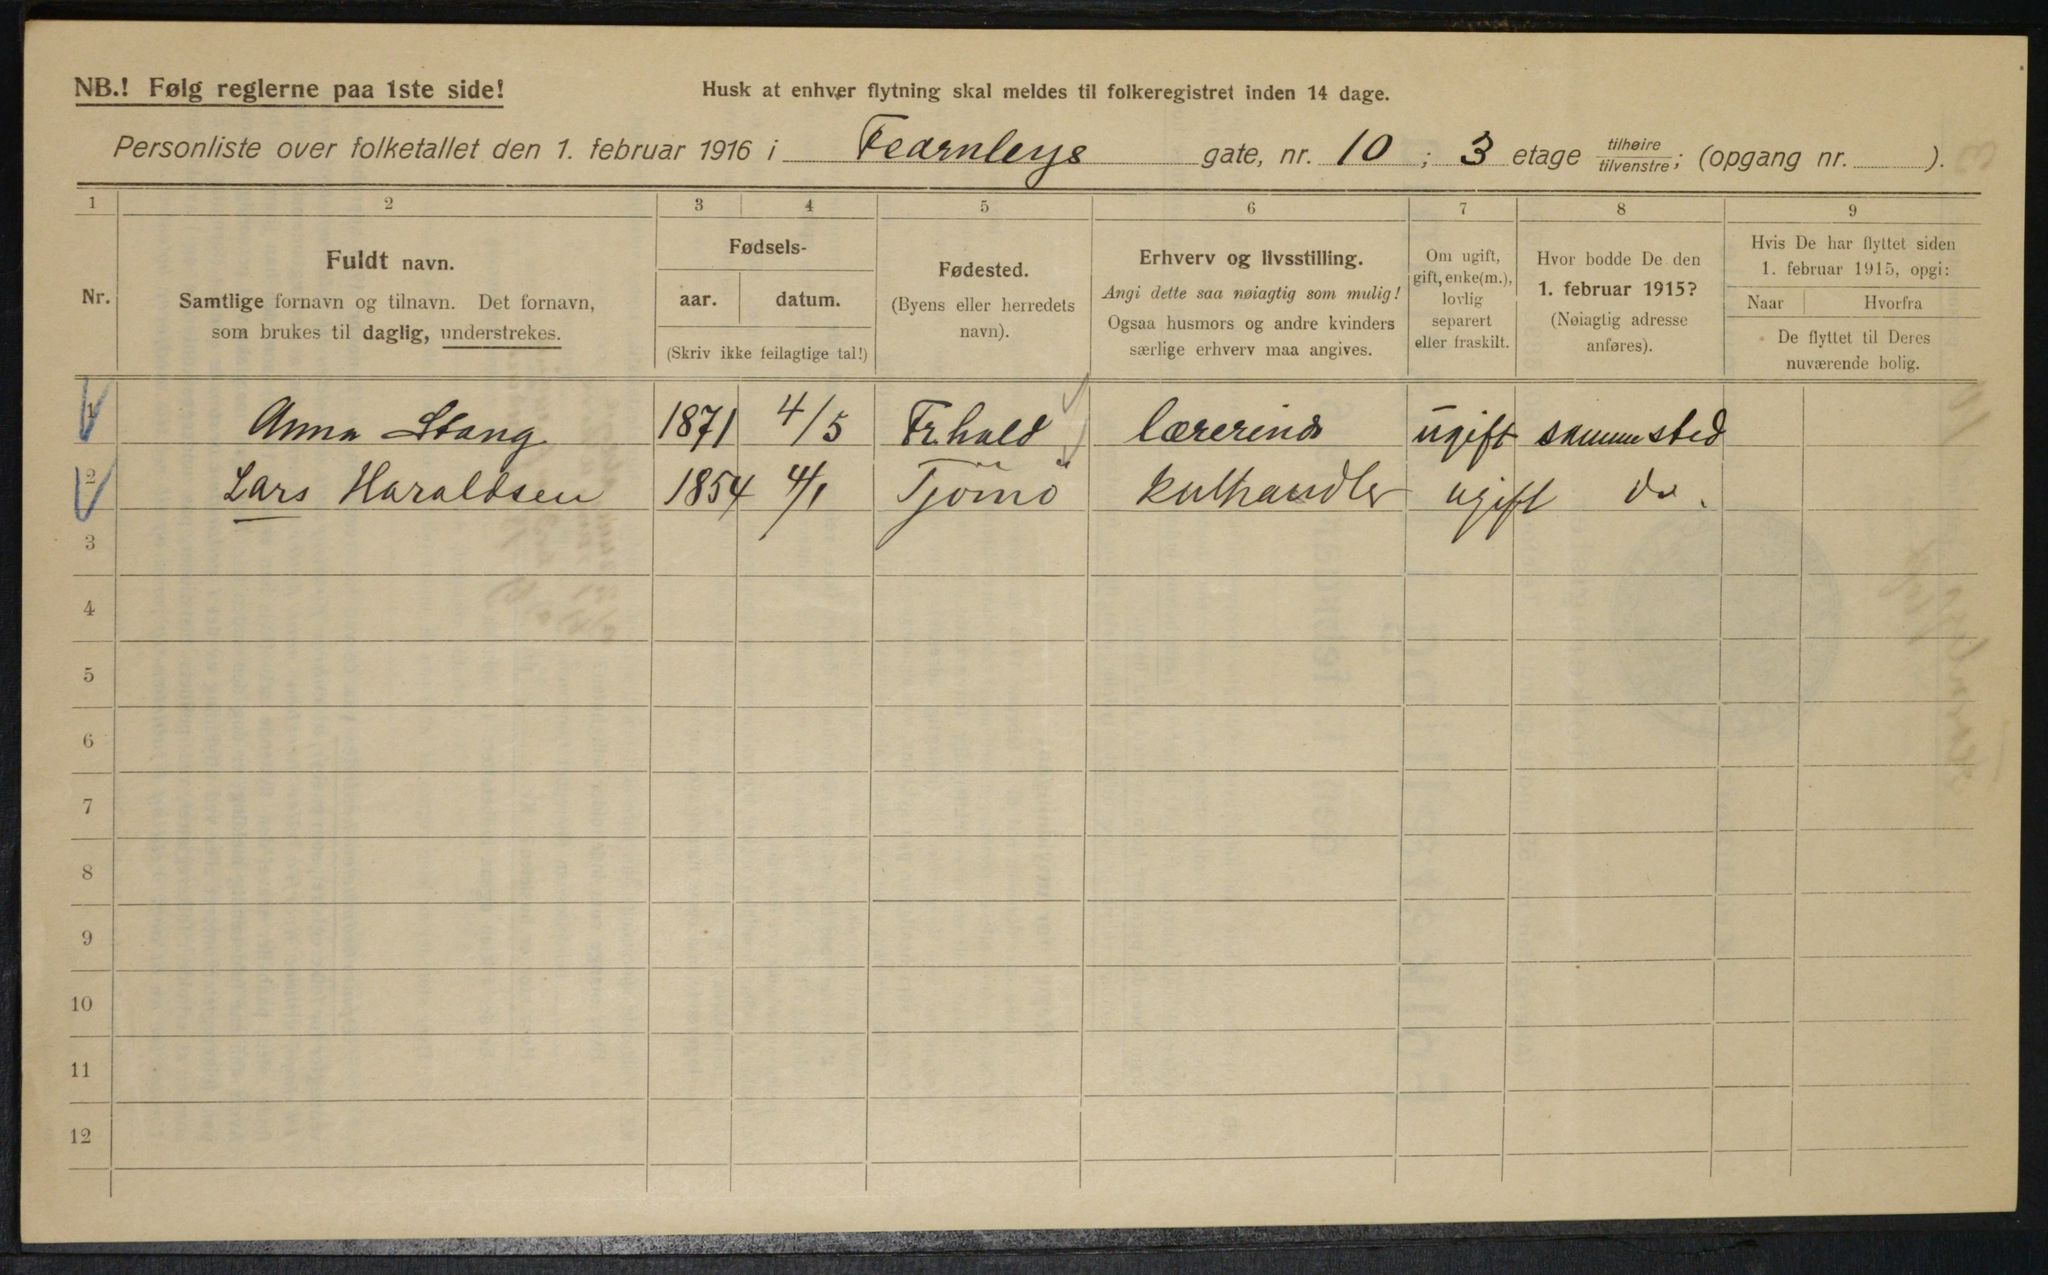 NB.! Følg reglerne paa 1ste side!
Husk at enhver flytning skal meldes til folkeregistret inden 14 dage.
Personliste over folketallet den 1. februar 1916 i Fearnleys gate, nr. 10; 3 etage tilhøire/tilvenstre; (opgang nr. ).
1 2 3 4 5 6 7 8 9
Nr.
Fuldt navn.
Samtlige fornavn og tilnavn. Det fornavn,
som brukes til daglig, understrekes.
Fødsels-
aar. datum.
(Skriv ikke feilagtige tal!)
Fødested.
(Byens eller herredets
navn).
Erhverv og livsstilling.
Angi dette saa nøiagtig som mulig!
Ogsaa husmors og andre kvinders
særlige erhverv maa angives.
Om ugift,
gift, enke(m.),
lovlig
separert
eller fraskilt.
Hvor bodde De den
1. februar 1915?
(Nøiagtig adresse
anføres).
Hvis De har flyttet siden
1. februar 1915, opgi:
Naar Hvorfra
De flyttet til Deres
nuværende bolig.
1 Anna Stang 1871 4/5 Fr.hald lærerinde ugift sammested
2 Lars Haraldsen 1854 4/1 Tjömö kulhandler ugift do.
3
4
5
6
7
8
9
10
11
12